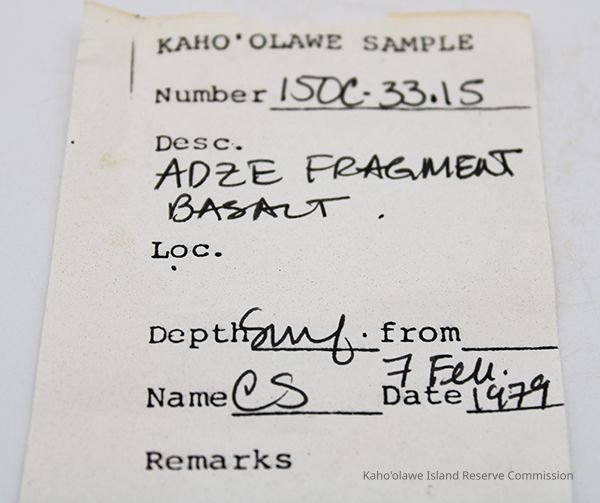 KAHO'OLAWE SAMPLE
Number 150C-33.15
Desc.
ADZE FRAGMENT
BASALT .
Loc.
Depth Surf. from
7 Feb.
Name CS Date 1979
Remarks
Kaho'olawe Island Reserve Commission